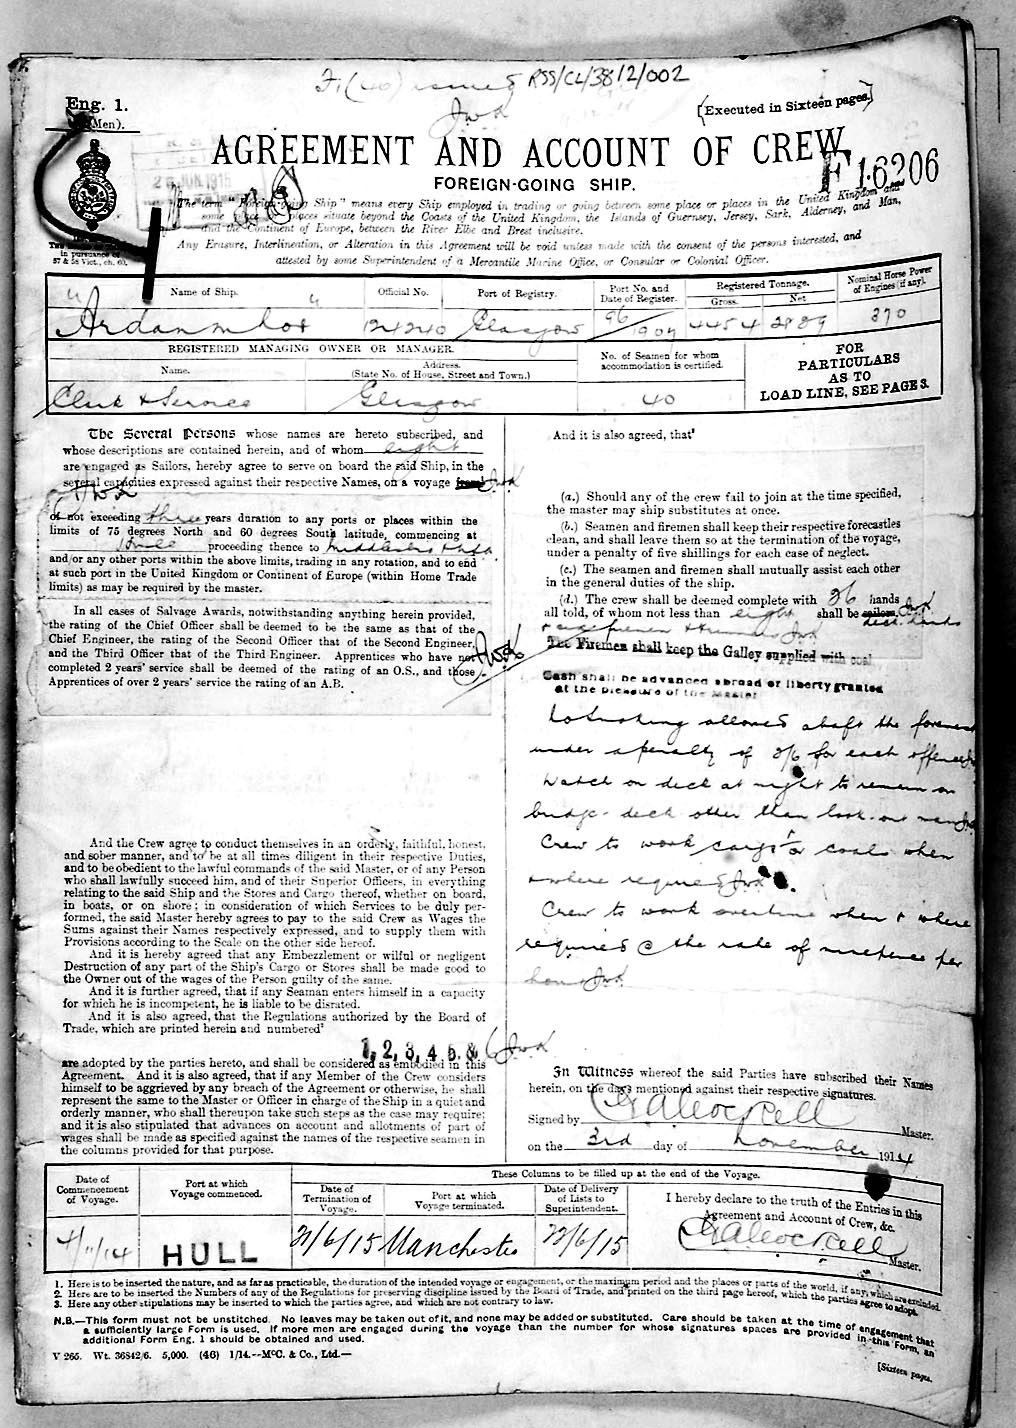 RSS/CL/38/2/002
Eng. 1.
[Executed in Sixteen pages.]
AGREEMENT AND ACCOUNT OF CREW
FOREIGN-GOING SHIP.
F 16206
JUN. 1915
The term "Foreign-going Ship" means every Ship employed in trading or going between some place or places in the United Kingdom and
some place or places situate beyond the Coasts of the United Kingdom, the Islands of Guernsey, Jersey, Sark, Alderney, and Man,
and the Continent of Europe, between the River Elbe and Brest inclusive.
Any Erasure, Interlineation, or Alteration in this Agreement will be void unless made with the consent of the persons interested, and
attested by some Superintendent of a Mercantile Marine Office, or Consular or Colonial Officer.
in pursuance of
57 & 58 Vict., ch. 60.
Name of Ship. Official No. Port of Registry. Port No. and Date of Register. Registered Tonnage. Gross. Net Nominal Horse Power of Engines (if any).
"Ardanmhor" 124240 Glasgow 96/1907 4454 2889 370
REGISTERED MANAGING OWNER OR MANAGER.
Name. Address. (State No. of House, Street and Town.)
No. of Seamen for whom accommodation is certified.
FOR
PARTICULARS
AS TO
LOAD LINE, SEE PAGE 3.
Clark & Service Glasgow 40
The Several Persons whose names are hereto subscribed, and
whose descriptions are contained herein, and of whom eight
are engaged as Sailors, hereby agree to serve on board the said Ship, in the
several capacities expressed against their respective Names, on a voyage from
of not exceeding three years duration to any ports or places within the
limits of 75 degrees North and 60 degrees South latitude, commencing at
Hull proceeding thence to Middlesbro
and/or any other ports within the above limits, trading in any rotation, and to end
at such port in the United Kingdom or Continent of Europe (within Home Trade
limits) as may be required by the master.
In all cases of Salvage Awards, notwithstanding anything herein provided,
the rating of the Chief Officer shall be deemed to be the same as that of the
Chief Engineer, the rating of the Second Officer that of the Second Engineer,
and the Third Officer that of the Third Engineer. Apprentices who have not
completed 2 years' service shall be deemed of the rating of an O.S., and those
Apprentices of over 2 years' service the rating of an A.B.
And the Crew agree to conduct themselves in an orderly, faithful, honest,
and sober manner, and to be at all times diligent in their respective Duties,
and to be obedient to the lawful commands of the said Master, or of any Person
who shall lawfully succeed him, and of their Superior Officers, in everything
relating to the said Ship and the Stores and Cargo thereof, whether on board,
in boats, or on shore; in consideration of which Services to be duly per-
formed, the said Master hereby agrees to pay to the said Crew as Wages the
Sums against their Names respectively expressed, and to supply them with
Provisions according to the Scale on the other side hereof.
And it is hereby agreed that any Embezzlement or wilful or negligent
Destruction of any part of the Ship's Cargo or Stores shall be made good to
the Owner out of the wages of the Person guilty of the same.
And it is further agreed, that if any Seaman enters himself in a capacity
for which he is incompetent, he is liable to be disrated.
And it is also agreed, that the Regulations authorized by the Board of
Trade, which are printed herein and numbered²
1, 2, 3, 4, 5, & 6
are adopted by the parties hereto, and shall be considered as embodied in this
Agreement. And it is also agreed, that if any Member of the Crew considers
himself to be aggrieved by any breach of the Agreement or otherwise, he shall
represent the same to the Master or Officer in charge of the Ship in a quiet and
orderly manner, who shall thereupon take such steps as the case may require;
and it is also stipulated that advances on account and allotments of part of
wages shall be made as specified against the names of the respective seamen in
the columns provided for that purpose.
And it is also agreed, that³
(a.) Should any of the crew fail to join at the time specified,
the master may ship substitutes at once.
(b.) Seamen and firemen shall keep their respective forecastles
clean, and shall leave them so at the termination of the voyage,
under a penalty of five shillings for each case of neglect.
(c.) The seamen and firemen shall mutually assist each other
in the general duties of the ship.
(d.) The crew shall be deemed complete with 36 hands
all told, of whom not less than eight shall be sailors deck hands
The Firemen shall keep the Galley supplied with coal
Cash shall be advanced abroad or liberty granted
at the pleasure of the Master
No smoking allowed abaft the foremast
under a penalty of 2/6 for each offence
Watch on deck at night to remain on
bridge deck other than look-out man
Crew to work cargo or coals when
& where required
Crew to work overtime when & where
required @ the rate of ninepence per
hour
In Witness whereof the said Parties have subscribed their Names
herein, on the days mentioned against their respective signatures.
Signed by Master.
on the 3rd day of November 1914
These Columns to be filled up at the end of the Voyage.
Date of Commencement of Voyage. Port at which Voyage commenced. Date of Termination of Voyage. Port at which Voyage terminated. Date of Delivery of Lists to Superintendent.
I hereby declare to the truth of the Entries in this
Agreement and Account of Crew, &c.
4/11/14 HULL 21/6/15 Manchester 23/6/15
Master.
1. Here is to be inserted the nature, and as far as practicable, the duration of the intended voyage or engagement, or the maximum period and the places or parts of the world, if any, which are excluded.
2. Here are to be inserted the Numbers of any of the Regulations for preserving discipline issued by the Board of Trade, and printed on the third page hereof, which the parties agree to adopt.
3. Here any other stipulations may be inserted to which the parties agree, and which are not contrary to law.
N.B.—This form must not be unstitched. No leaves may be taken out of it, and none may be added or substituted. Care should be taken at the time of engagement that
a sufficiently large Form is used. If more men are engaged during the voyage than the number for whose signatures spaces are provided in this Form, an
additional Form Eng. 1 should be obtained and used.
V 265. Wt. 36842/6. 5,000. (46) 1/14.—McC. & Co., Ltd.—
[Sixteen pages.